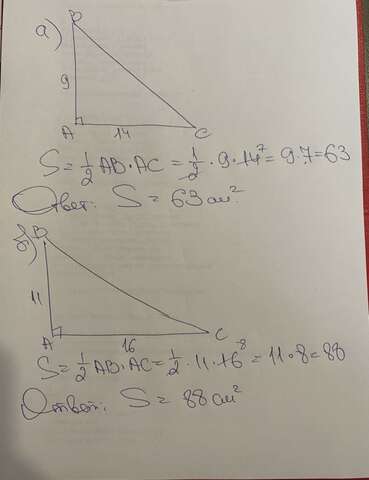 а) B
9
A 14 C
S = 1/2 AB · AC = 1/2 · 9 · 14 7 = 9 · 7 = 63
Ответ: S = 63 см²
б) B
11
A 16 C
S = 1/2 AB · AC = 1/2 · 11 · 16 8 = 11 · 8 = 88
Ответ: S = 88 см²